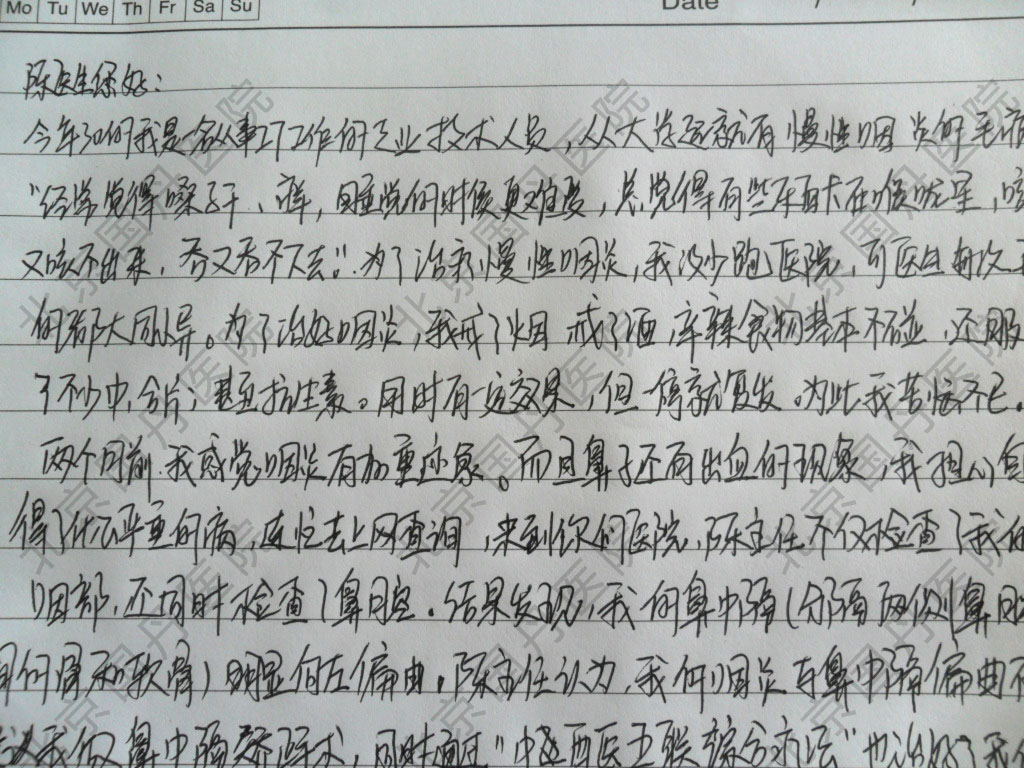 Mo Tu We Th Fr Sa Su Date / /
陈医生你好:
今年30的我是名从事IT工作的专业技术人员,从大学起就有慢性咽炎的毛病
"经常觉得嗓子干、痒,睡觉的时候更难受,总觉得有些东西卡在喉咙里,咳
又咳不出来,吞又吞不下去"。为了治疗慢性咽炎,我没少跑医院,可医生每次开
的都大同小异。为了治好咽炎,我戒了烟戒了酒,辛辣食物基本不碰,还服
了不少中,含片,甚至抗生素。用时有一定效果,但一停就复发。为此我苦恼不已。
两个月前,我感觉咽炎有加重迹象。而且鼻子还有出血的现象,我担心自
得了什么严重的病,连忙去上网查询,来到你们医院,陈主任不仅检查了我的
咽部,还同时检查了鼻腔。结果发现,我的鼻中隔(分隔两侧鼻腔
间的骨和软骨)明显向左偏曲。陈主任认为,我的咽炎与鼻中隔偏曲不
我做鼻中隔矫正术,同时通过"中西医五联综合疗法"也治好了我
北京国丹医院